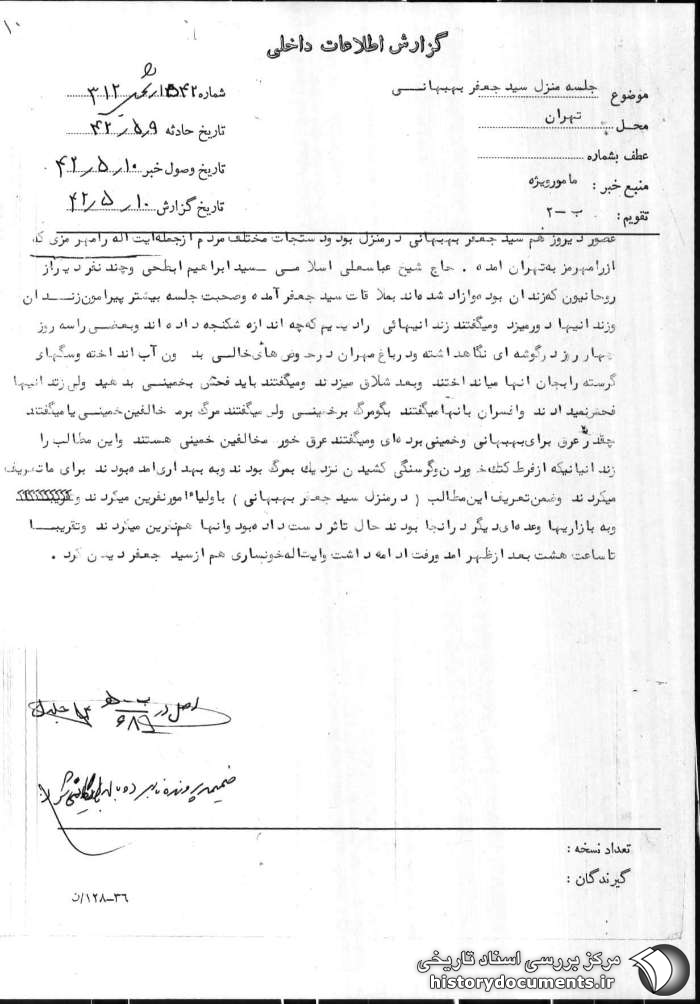 ۱۰
گزارش اطلاعات داخلی
موضوع جلسه منزل سید جعفر بهبهانی
محل تهران
عطف بشماره
منبع خبر : مامورویژه
تقویم : ب -۲
شماره ۳۱۲
تاریخ حادثه ۴۲٫۵٫۹
تاریخ وصول خبر ۴۲٫۵٫۱۰
تاریخ گزارش ۴۲٫۵٫۱۰
عصر دیروز هم سید جعفر بهبهانی درمنزل بود ودستجات مختلف مردم ازجمله ایت اله رامهرمزی که
ازرامهرمز به تهران امده . حاج شیخ عباسعلی اسلامی -سید ابراهیم ابطحی وچند نفر دیگراز
روحانیون که زندان بوده وازاد شده اند بملاقات سید جعفر آمده وصحبت جلسه بیشتر پیرامون زندان
وزندانیها دورمیزد ومیگفتند زندانیهائی رادیدیم که چه اندازه شکنجه داده اند وبعضی راسه روز
چهار روز درگوشه ای نگاهداشته ودرباغ مهران درحوض های خالی بدون آب انداخته وسگهای
گرسته رابجان انها میانداختند وبعد شلاق میزدند ومیگفتند باید فحش بخمینی بدهید ولی زندانیها
فحش نمیدادند وافسران بانها میگفتند بگومرگ برخمینی ولی میگفتند مرگ برمخالفین خمینی یا میگفتند
چقدر عرق برای بهبهانی وخمینی برده ای ومیگفتند عرق خور مخالفین خمینی هستند واین مطالب را
زندانیانیکه ازفرط کتك خوردن وگرسنگی کشیدن نزدیك بمرگ بودند وبه بهداری امده بودند برای ماتعریف
میکردند وضمن تعریف این مطالب ( درمنزل سید جعفر بهبهانی ) باولیاء امورنفرین میکردند
وبه بازاریها وعده ای دیگر درانجا بودند حال تاثر دست داده بود وانها هم نفرین میکردند وتقریبا
تا ساعت هشت بعد ازظهر امد ورفت ادامه داشت وایت اله خونساری هم ازسید جعفر دیدن کرد .
اصل در
ضمیمه پرونده نامبرده
تعداد نسخه :
گیرندگان :
۳۶-۱۲۸/ن
مرکز بررسی اسناد تاریخی
historydocuments.ir